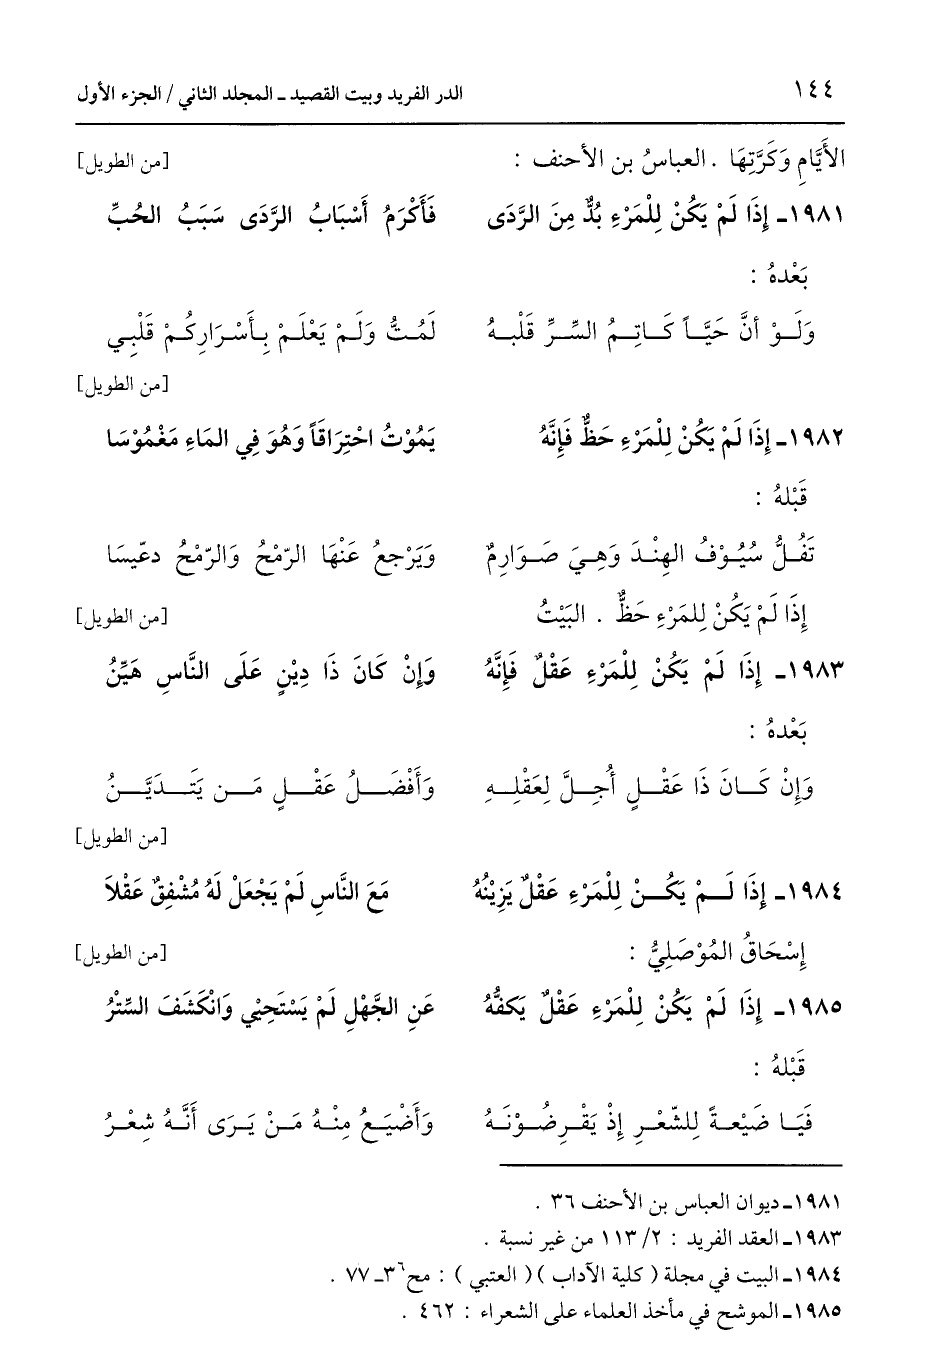 ١٤٤ الدر الفريد وبيت القصيد ـ المجلد الثاني / الجزء الأول
الأَيَّامِ وَكَرَّتِهَا . العباسُ بن الأحنف : [من الطويل]
١٩٨١ـ إِذَا لَمْ يَكُنْ لِلْمَرْءِ بُدٌّ مِنَ الرَّدَى فَأَكْرَمُ أَسْبَابُ الرَّدَى سَبَبُ الحُبِّ
بَعْدهُ :
وَلَوْ أنَّ حَيَّاً كَاتِمُ السِّرِّ قَلْبهُ لَمُتُّ وَلَمْ يَعْلَمْ بِأَسْرَارِكُمْ قَلْبِي
[من الطويل]
١٩٨٢ـ إِذَا لَمْ يَكُنْ لِلْمَرْءِ حَظٌّ فَإِنَّهُ يَمُوْتُ احْتِرَاقَاً وَهُوَ فِي المَاءِ مَغْمُوْسَا
قَبْلهُ :
تَفُلُّ سُيُوْفُ الهِنْدَ وَهِيَ صَوَارِمٌ وَيَرْجعُ عَنْهَا الرّمْحُ وَالرّمْحُ دعّيسَا
إِذَا لَمْ يَكُنْ لِلمَرْءِ حَظٌّ . البَيْتُ [من الطويل]
١٩٨٣ـ إِذَا لَمْ يَكُنْ لِلْمَرْءِ عَقْلٌ فَإِنَّهُ وَإِنْ كَانَ ذَا دِيْنٍ عَلَى النَّاسِ هَيِّنُ
بَعْدهُ :
وَإِنْ كَانَ ذَا عَقْلٍ أُجِلَّ لِعَقْلِهِ وَأَفْضَلُ عَقْلٍ مَن يَتَدَيَّنُ
[من الطويل]
١٩٨٤ـ إِذَا لَمْ يَكُنْ لِلْمَرْءِ عَقْلٌ يَزِيْنُهُ مَعَ النَّاسِ لَمْ يَجْعَلْ لَهُ مُشْفِقٌ عَقْلاَ
إِسْحَاقُ المُوْصَلِيُّ : [من الطويل]
١٩٨٥ـ إِذَا لَمْ يَكُنْ لِلْمَرْءِ عَقْلٌ يَكفُّهُ عَنِ الجَّهْلِ لَمْ يَسْتَحِيْي وَانْكَشَفَ السِّتْرُ
قَبْلهُ :
فَيَا ضَيْعةً لِلشّعْرِ إِذْ يَقْرِضُوْنَهُ وَأَضْيَعُ مِنْهُ مَنْ يَرَى أَنَّهُ شِعْرُ
١٩٨١ـ ديوان العباس بن الأحنف ٣٦ .
١٩٨٣ـ العقد الفريد : ٢/ ١١٣ من غير نسبة .
١٩٨٤ـ البيت في مجلة ( كلية الآداب )( العتبي ) : مج٣٦ـ ٧٧ .
١٩٨٥ـ الموشح في مأخذ العلماء على الشعراء : ٤٦٢ .